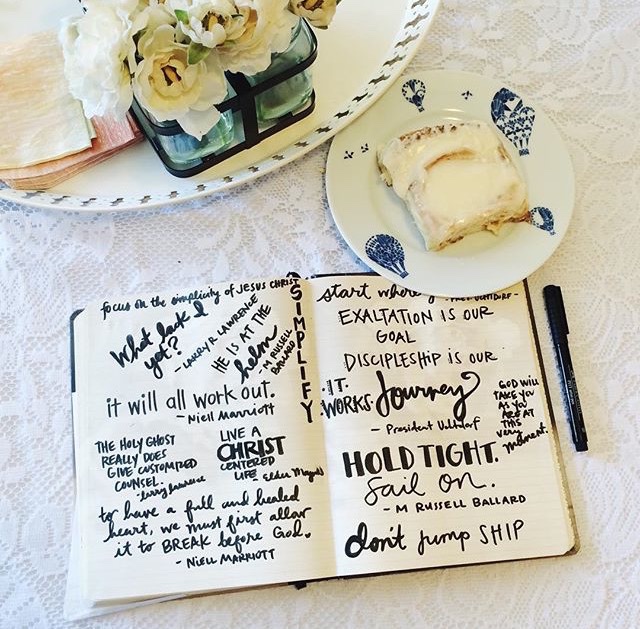 focus on the simplicity of JESUS CHRIST
What lack I
yet?
- LARRY R LAWRENCE
HE IS AT THE
helm
- M RUSSELL
BALLARD
SIMPLIFY
it will all work out.
- Niell Marriott
THE HOLY GHOST
REALLY DOES
GIVE CUSTOMIZED
COUNSEL.
- larry lawrence
LIVE A
CHRIST
CENTERED
LIFE
to have a full and healed
heart, we must first allow
it to BREAK before God.
- NIELL MARRIOTT
start where
EXALTATION IS OUR
GOAL
DISCIPLESHIP IS OUR
Journey
- President Uchtdorf
·IT·
WORKS·
GOD WILL
TAKE YOU
AS YOU
ARE AT
THIS
very
moment.
HOLD TIGHT.
Sail on.
- M RUSSELL BALLARD
don't jump SHIP